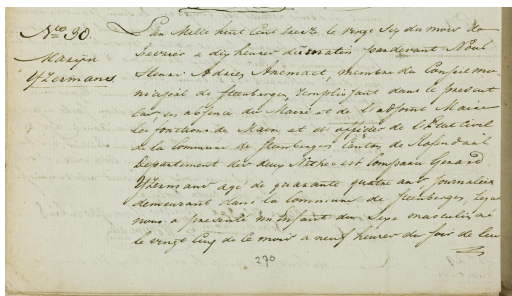 No 30.
Marijn
IJzermans
L'an Mille huit Cent treize le vingt Six du mois de
fevrier a dix heures du matin pardevant Nous
Sieur Adries Anemaet, membre du Conseil mu-
nicipil de Steenbergen, remplissant dans le present
Cas en absence du Maire et de l'adjoint Maire
les fonctions de Maire et d'officier de l'Etat Civil
de la Commune de Steenbergen Canton de Rosendaal
Departement des deux Nethes est Comparu Gerard
IJzermans agé de quarante quatre ans, journalier
demeurant dans la Commune de Steenbergen, lequel
nous a presenté un Enfant du Sexe masculin né
le vingt Cinq de le mois a neuf heures du soir de lui
270